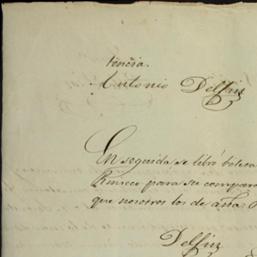 tencia.
Antonio Delfin
En seguida se libró boleta
para su compara
que nosotros los de asta
Delfin